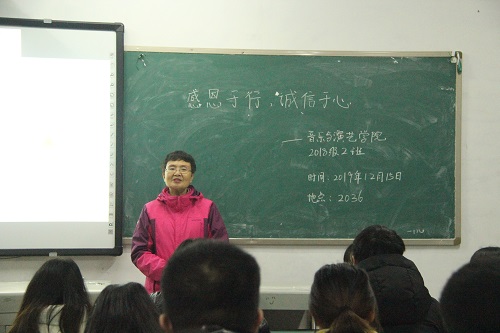 感恩于行，诚信于心
——音乐与演艺学院
2018级2班
时间：2019年12月15日
地点：2036